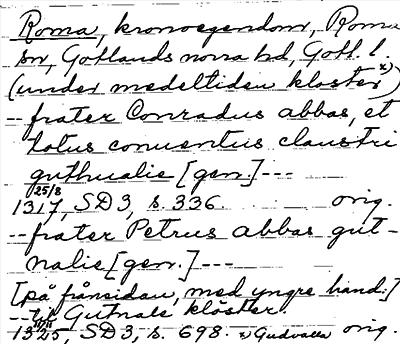 Roma, kronoegendom, Roma
sn, Gotlands norra hd, Gotl. l.
(under medeltiden kloster x))
-- frater Conradus abbas, et
totus conuentus claustri
guthualie [gen.] ---
25/8
1317, SD 3, s. 336 orig.
-- frater Petrus abbas gut-
nalie [gen.] ---
[på frånsidan, med yngre hand:]
-- Gutnale kloster.
1325, SD 3, s. 698. x) Gudvalla orig.